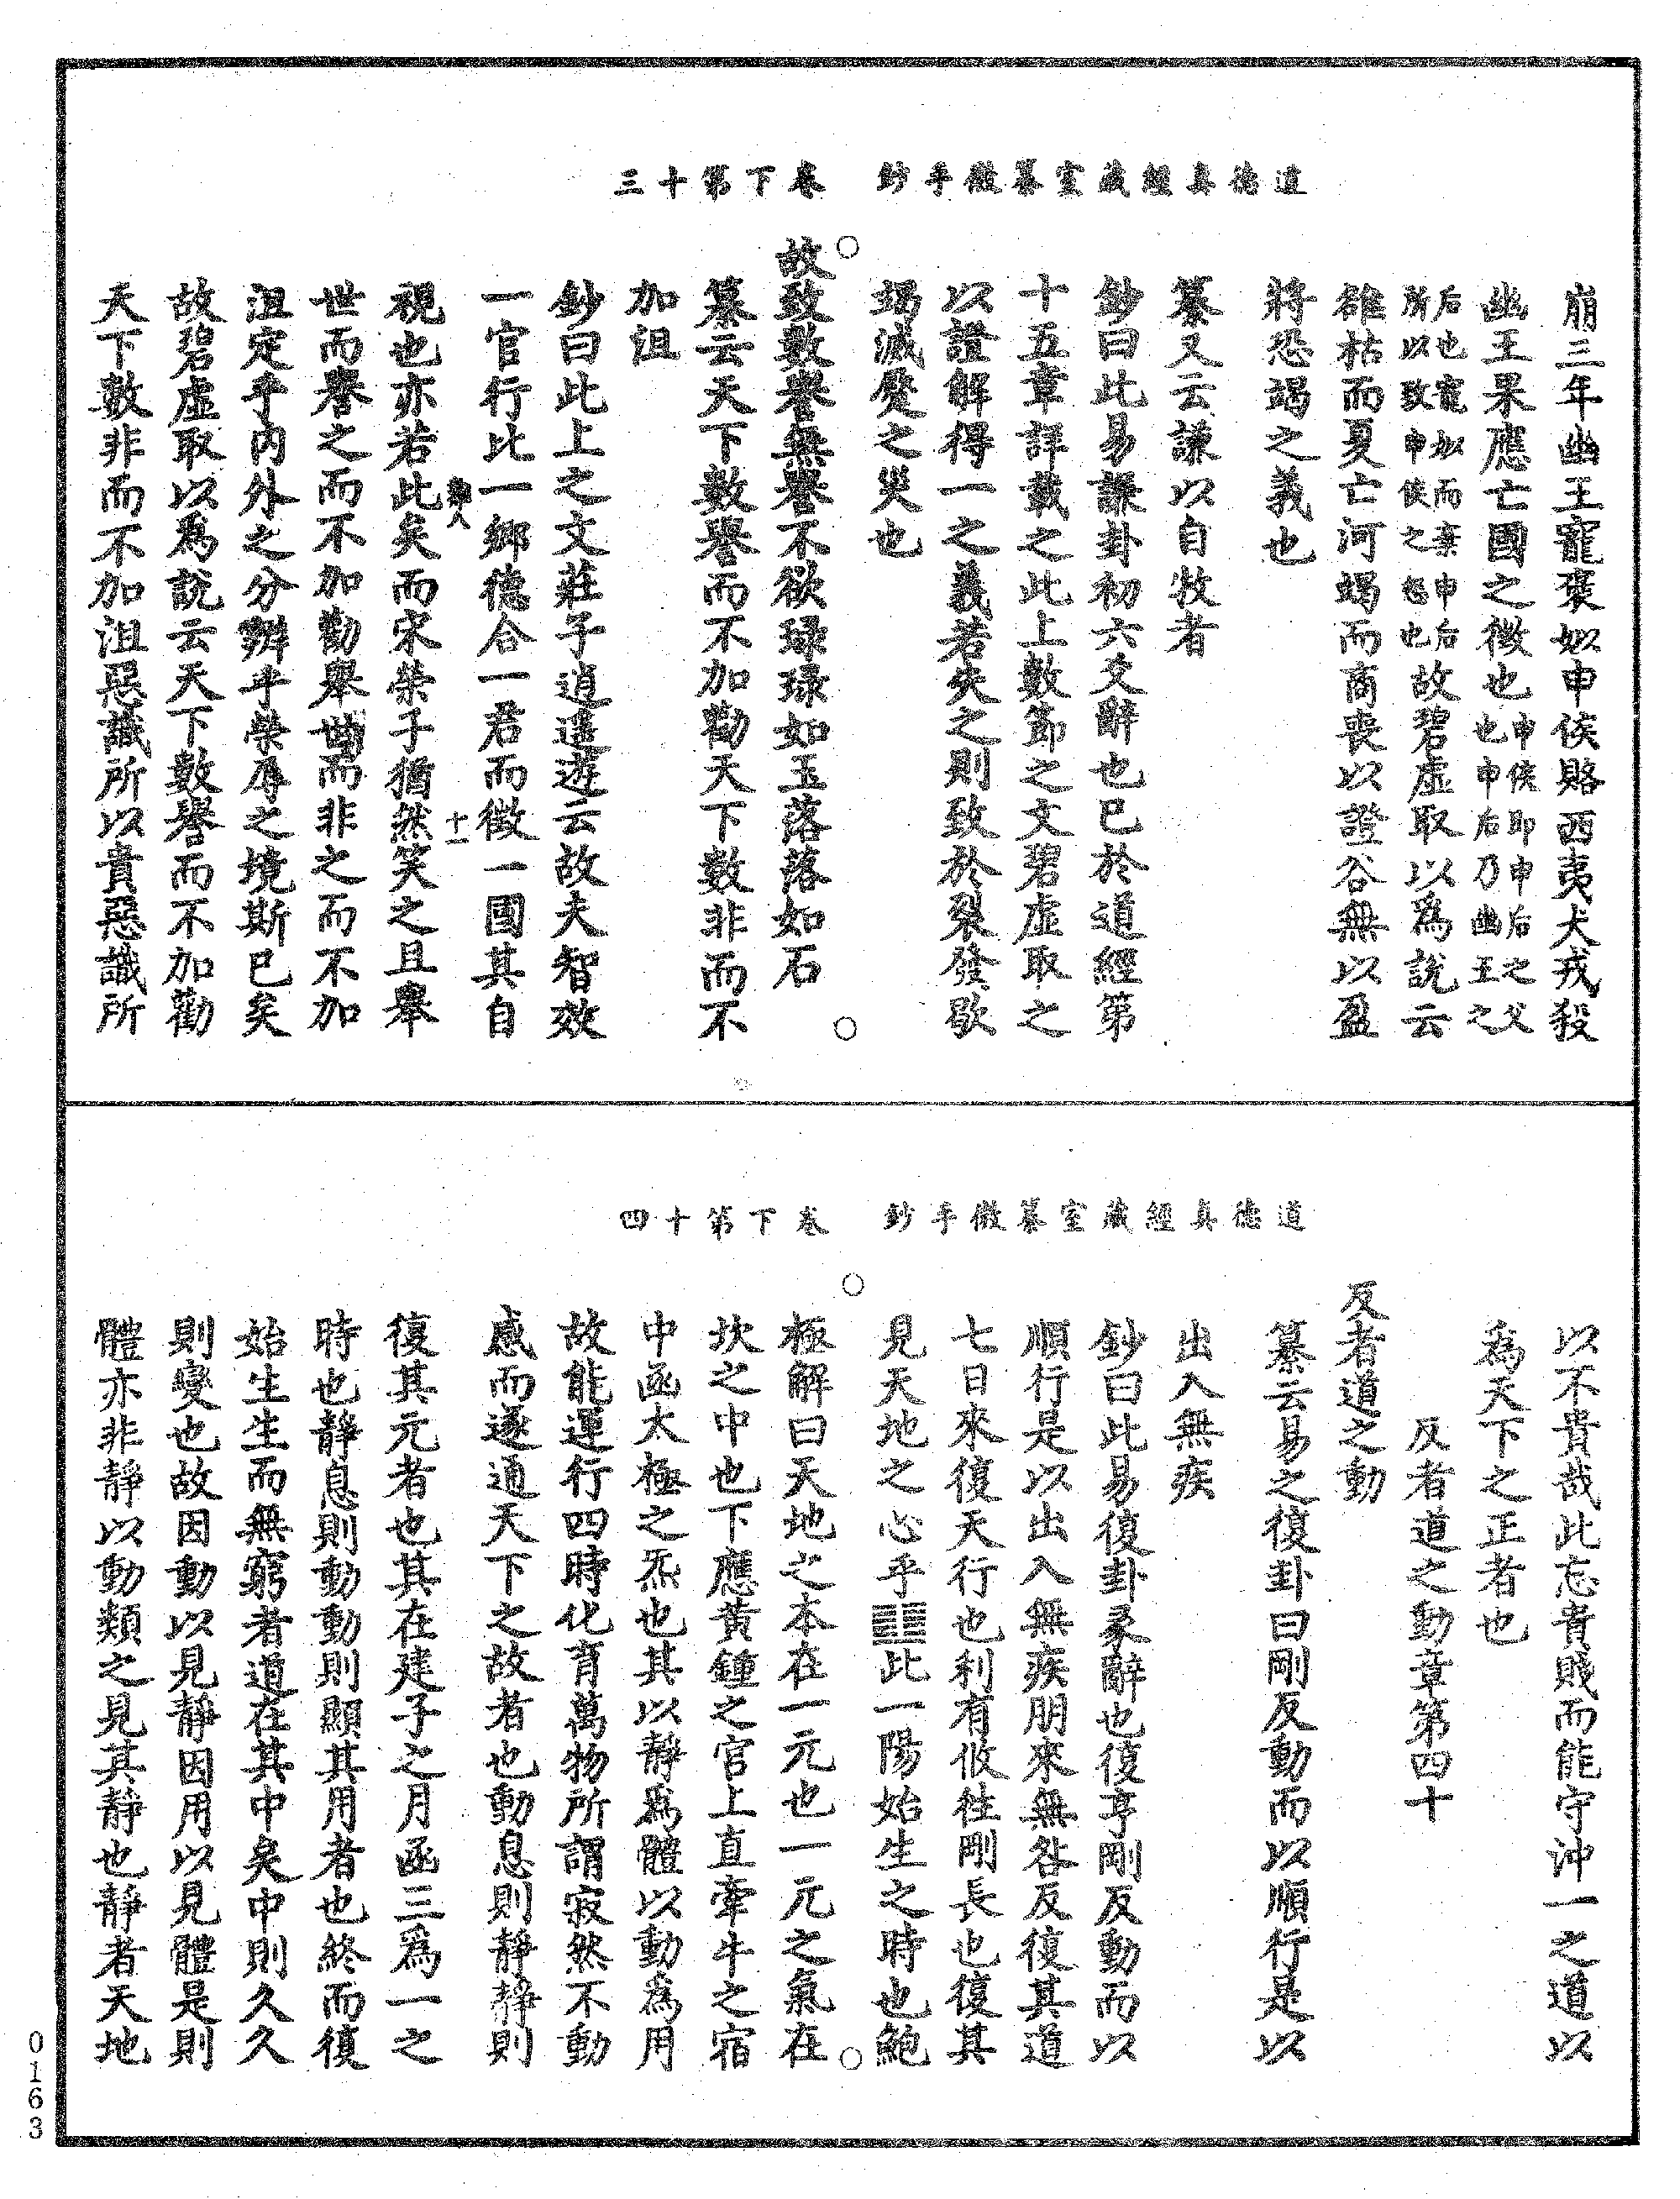 道德真經藏室纂微手鈔　卷下第十三
崩三年幽王寵褒姒申侯賂西夷犬戎殺
幽王果應亡國之徵也申侯即申后之父也申后乃幽王之
后也寵姒而棄申后所以致申侯之怒也故碧虛取以為說云
雒枯而夏亡河竭而商喪以證谷無以盈
將恐竭之義也
纂又云謙以自牧者
鈔曰此易謙卦初六爻辭也已於道經第
十五章詳載之此上數節之文碧虛取之
以證解得一之義若失之則致於裂發歇
竭滅蹷之災也
故致數譽無譽不欲琭琭如玉落落如石
纂云天下數譽而不加勸天下數非而不
加沮
鈔曰此上之文莊子逍遙遊云故夫智效
一官行比一鄉德合一君而徵一國其自
十二
視也亦若此矣而宋榮子猶然笑之且舉
世而譽之而不加勸舉世而非之而不加
沮定乎內外之分辨乎榮辱之境斯已矣
故碧虛取以為說云天下數譽而不加勸
天下數非而不加沮惡識所以貴惡識所
道德真經藏室纂微手鈔　卷下第十四
以不貴哉此忘貴賤而能守沖一之道以
為天下之正者也
反者道之動章第四十
反者道之動
纂云易之復卦曰剛反動而以順行是以
出入無疾
鈔曰此易復卦彖辭也復亨剛反動而以
順行是以出入無疾朋來無咎反復其道
七日來復天行也利有攸往剛長也復其
見天地之心乎䷗此一陽始生之時也鮑
極解曰天地之本在一元也一元之氣在
坎之中也下應黃鍾之宮上直牽牛之宿
中函太極之炁也其以靜為體以動為用
故能運行四時化育萬物所謂寂然不動
感而遂通天下之故者也動息則靜靜則
復其元者也其在建子之月函三為一之
時也靜息則動動則顯其用者也終而復
始生生而無窮者道在其中矣中則久久
則變也故因動以見靜因用以見體是則
體亦非靜以動類之見其靜也靜者天地
0163